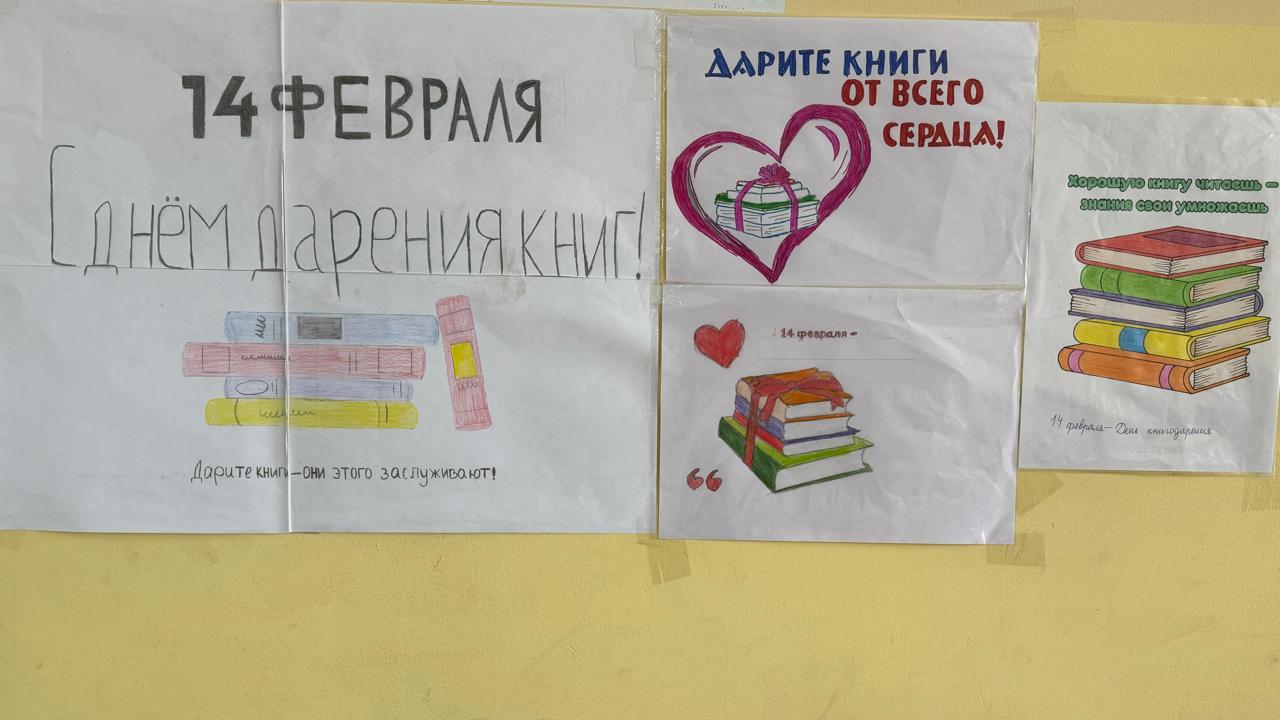 14 ФЕВРАЛЯ
С днём дарения книг!
Дарите книги—они этого заслуживают!
ДАРИТЕ КНИГИ
ОТ ВСЕГО
СЕРДЦА!
14 февраля -
Хорошую книгу читаешь -
знания свои умножаешь
14 февраля—День книгодарения